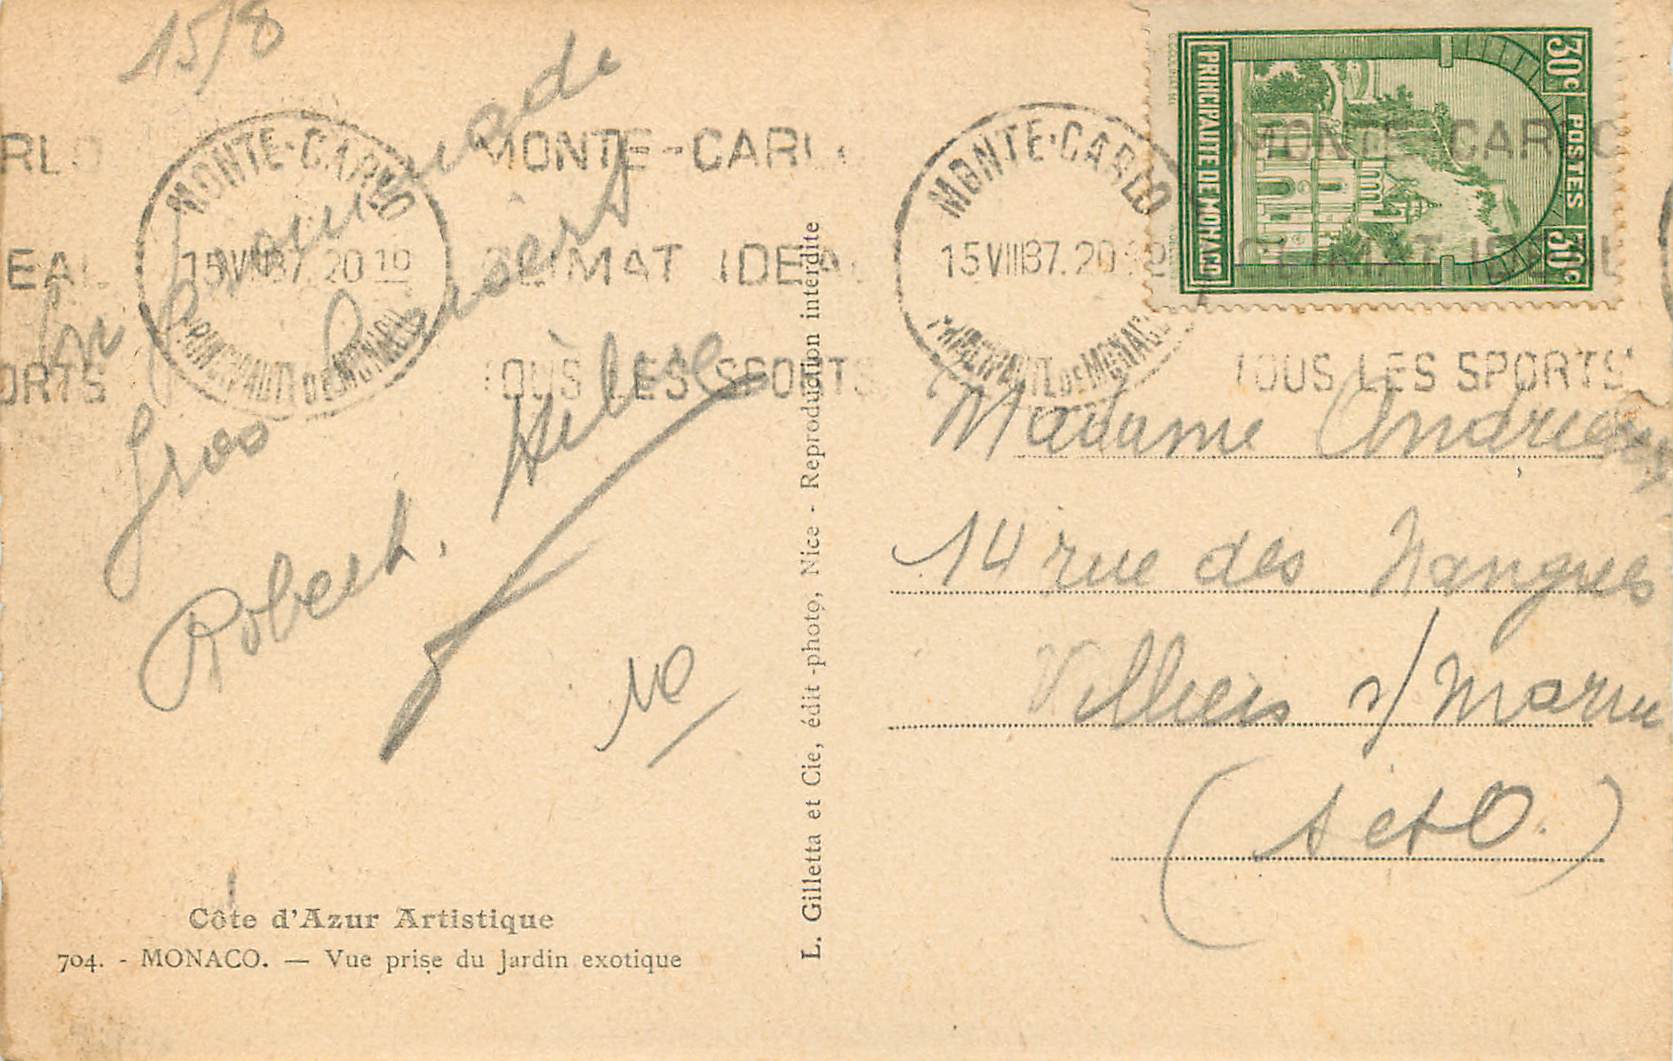 15/8
En promenade
Gros baisers
Robert. Hélène
Côte d'Azur Artistique
704. - MONACO. — Vue prise du Jardin exotique
L. Gilletta et Cie, édit-photo, Nice - Reproduction interdite
RLO
EAL
ORTS
MONTE-CARLO
15 VIII 37. 20 10
PRINCIPAUTE DE MONACO
MONTE-CARLO
CLIMAT IDEAL
TOUS LES SPORTS
MONTE-CARLO
15 VIII 37. 20
PRINCIPAUTE DE MONACO
MONTE-CARLO
CLIMAT IDEAL
TOUS LES SPORTS
30c POSTES 30c
PRINCIPAUTE DE MONACO
Madame
14 rue des
Villiers s/ Marne
(S et O.)